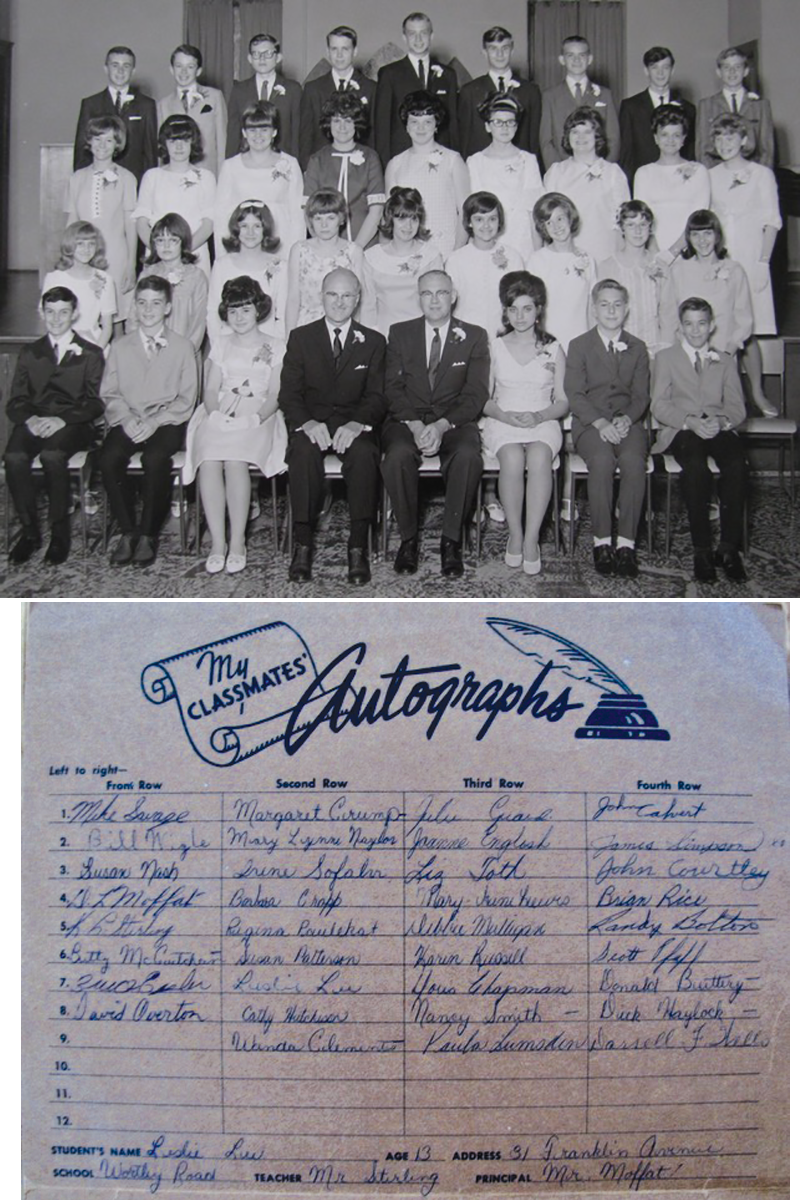 My
CLASSMATES'
Autographs
Left to right—
Front Row Second Row Third Row Fourth Row
1. Mike Savage Margaret Crump Julie Guard John Calvert
2. Bill Wigle Mary Lynne Naylor Joanne English James Simpson
3. Susan Nash Irene Sofalvi Liz Toth John Courtley
4. D. L. Moffat Barbara Cropp Mary-Irene Brian Rice
5. Stirling Regina Debbie Randy Bolton
6. Betty McCutcheon Susan Patterson Karen Russell Scott
7. Leslie Lee Chapman Donald Buttery
8. David Overton Cathy Hutchison Nancy Smith — Dick Haylock —
9. Wanda Clements Paula Lumsden Darrell F.
10.
11.
12.
STUDENT'S NAME Leslie Lee AGE 13 ADDRESS 31 Franklin Avenue
SCHOOL Wortley Road TEACHER Mr Stirling PRINCIPAL Mr. Moffat